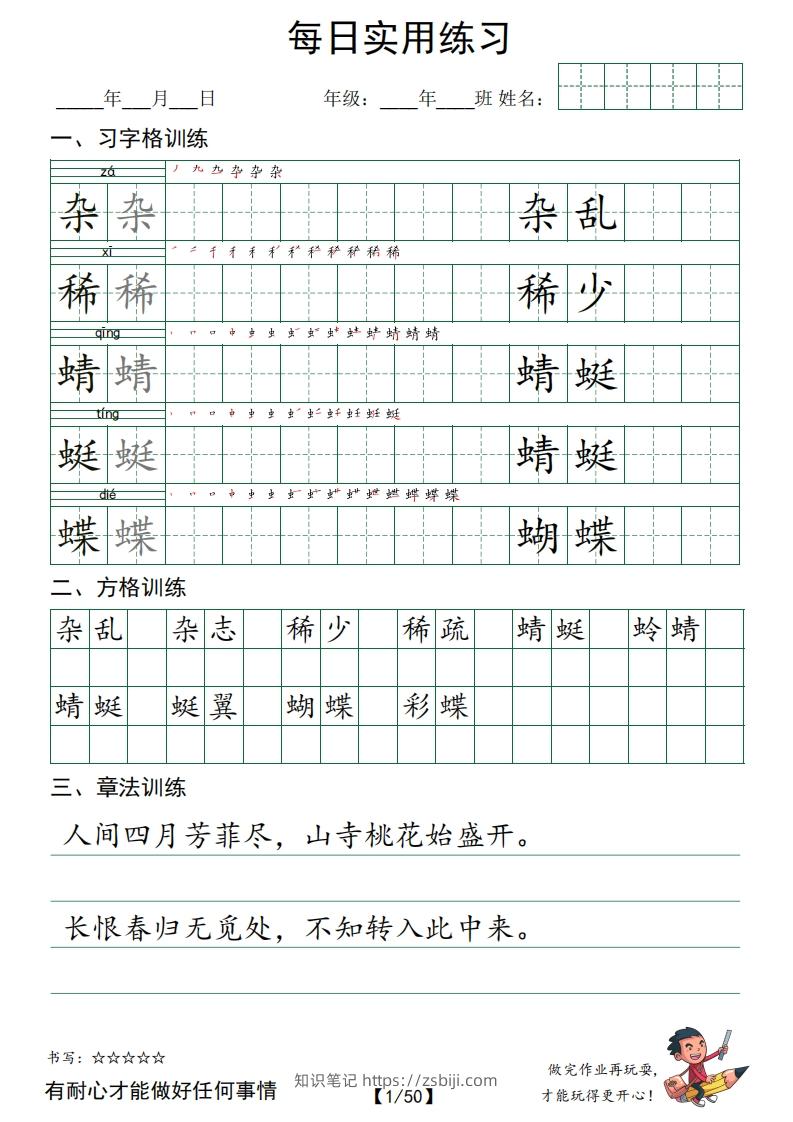 每日实用练习
_____年___月___日 年级：____年____班 姓名：
一、习字格训练
zá
杂 杂 杂 乱
xī
稀 稀 稀 少
qīng
蜻 蜻 蜻 蜓
tíng
蜓 蜓 蜻 蜓
dié
蝶 蝶 蝴 蝶
二、方格训练
杂 乱 杂 志 稀 少 稀 疏 蜻 蜓 蛉 蜻
蜻 蜓 蜓 翼 蝴 蝶 彩 蝶
三、章法训练
人间四月芳菲尽，山寺桃花始盛开。
长恨春归无觅处，不知转入此中来。
书写：☆☆☆☆☆
做完作业再玩耍，
有耐心才能做好任何事情
知识笔记 https://zsbiji.com
【1/50】
才能玩得更开心！